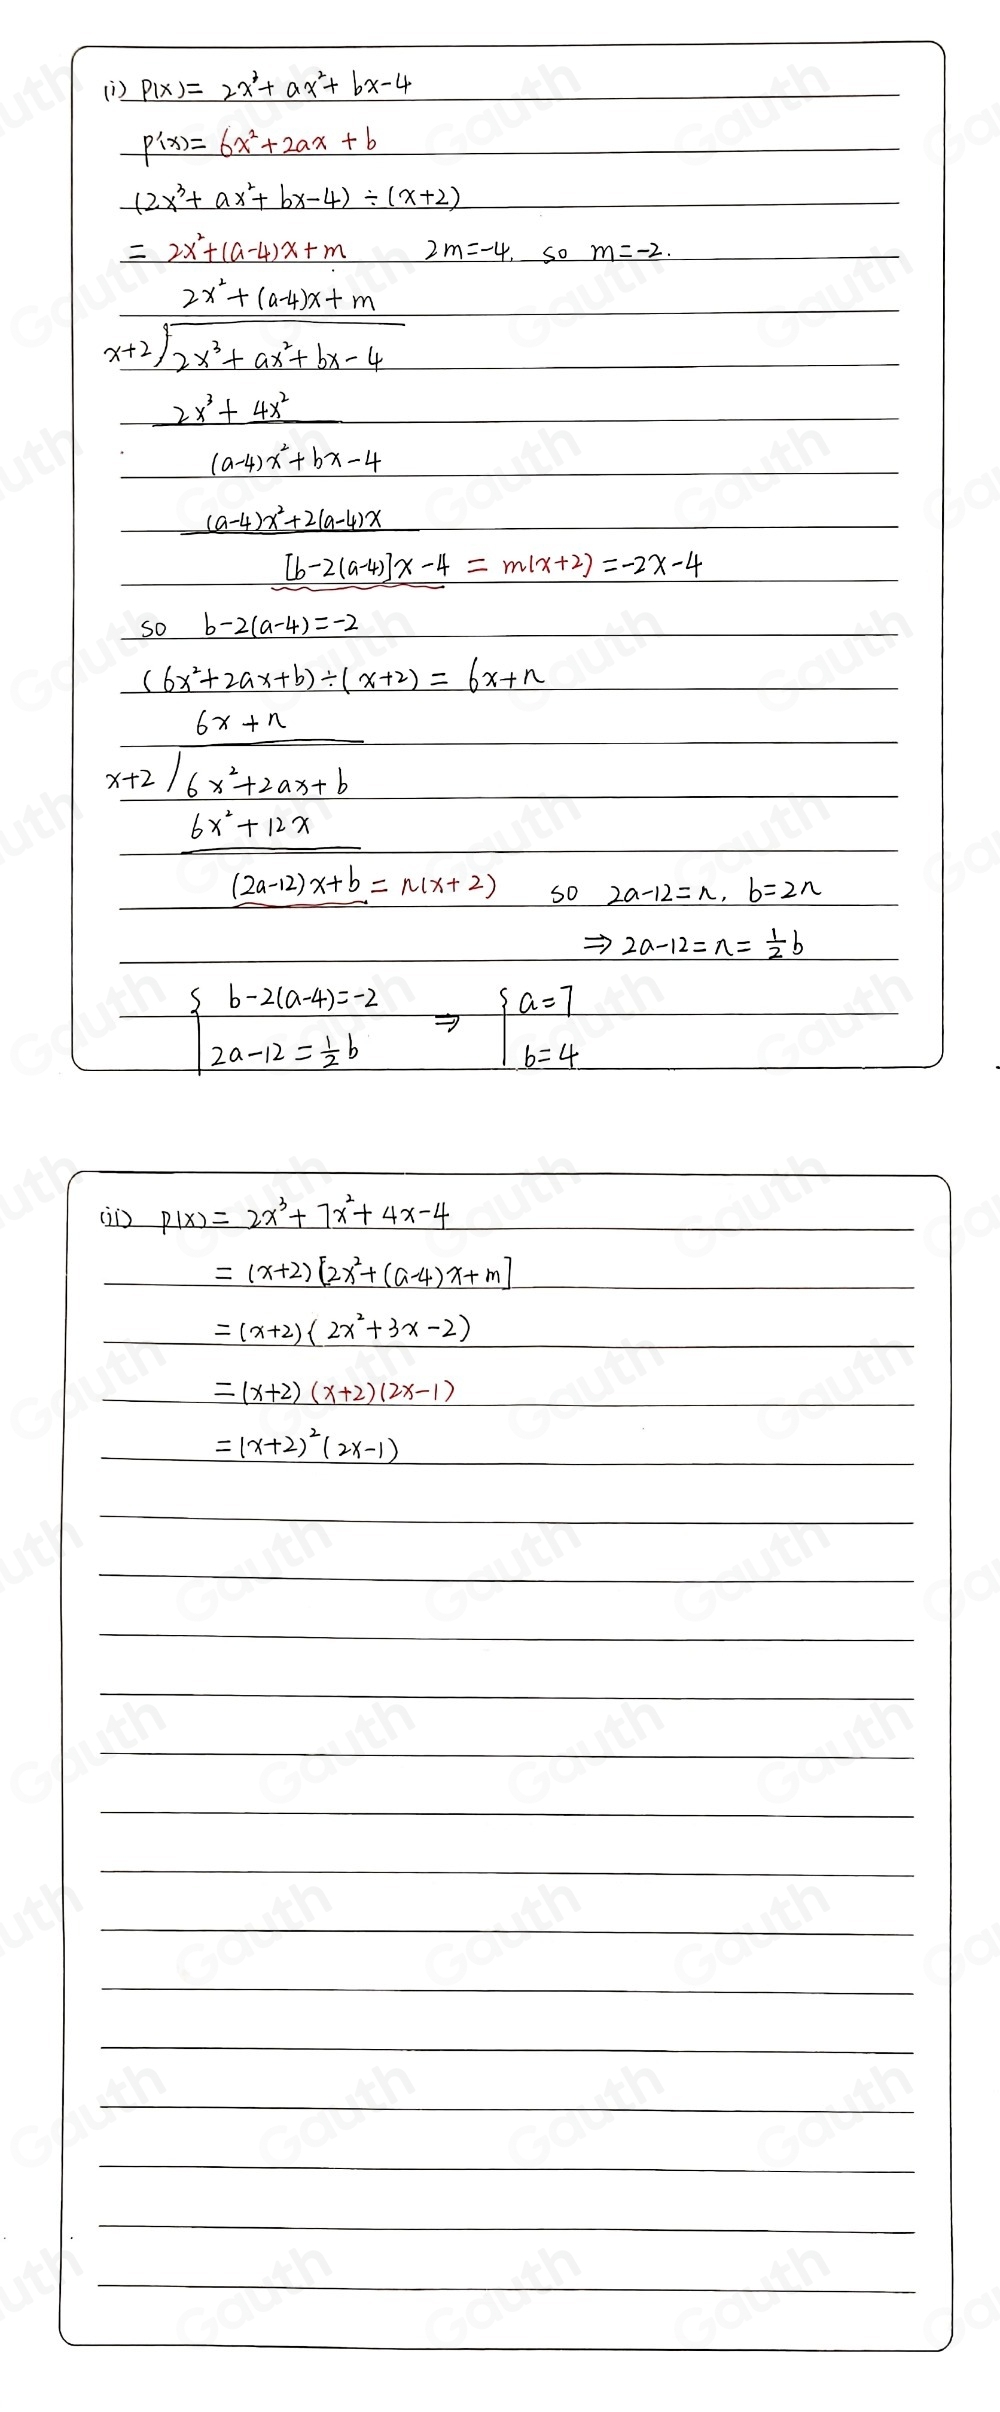 (i) P(x) = 2x³ + ax² + bx - 4
P'(x) = 6x² + 2ax + b
(2x³ + ax² + bx - 4) ÷ (x+2)
= 2x² + (a-4)x + m 2m = -4, so m = -2.
2x² + (a-4)x + m
x+2 ) 2x³ + ax² + bx - 4
2x³ + 4x²
(a-4)x² + bx - 4
(a-4)x² + 2(a-4)x
[b-2(a-4)]x - 4 = m(x+2) = -2x - 4
so b - 2(a-4) = -2
(6x² + 2ax + b) ÷ (x+2) = 6x + n
6x + n
x+2 / 6x² + 2ax + b
6x² + 12x
(2a-12)x + b = n(x+2) so 2a-12 = n, b = 2n
⇒ 2a-12 = n = ½b
{ b - 2(a-4) = -2 ⇒ { a = 7
2a - 12 = ½b b = 4
(ii) P(x) = 2x³ + 7x² + 4x - 4
= (x+2)[2x² + (a-4)x + m]
= (x+2)(2x² + 3x - 2)
= (x+2)(x+2)(2x-1)
= (x+2)²(2x-1)
Gauth